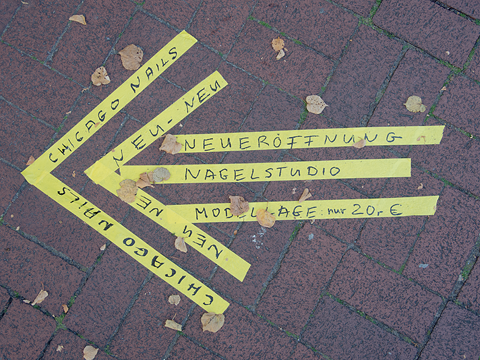 CHICAGO NAILS
NEU-NEU
NEUERÖFFNUNG
NAGELSTUDIO
MODELLAGE nur 20,- €
NEU NEU
CHICAGO NAILS